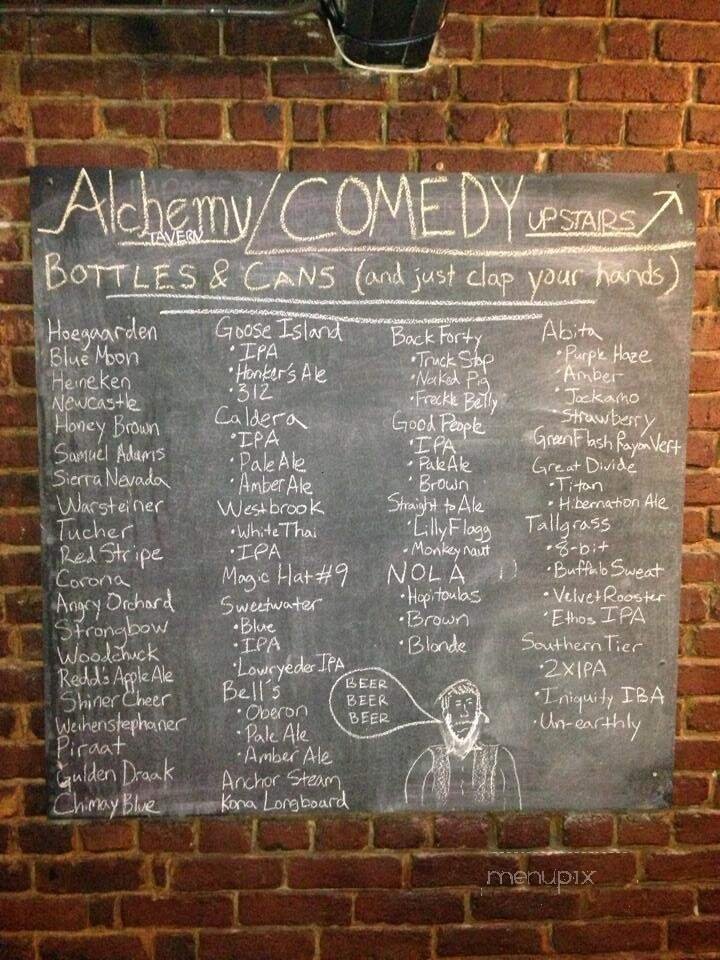 Alchemy/COMEDY UPSTAIRS
TAVERN
BOTTLES & CANS (and just clap your hands)
Hoegaarden
Blue Moon
Heineken
Newcastle
Honey Brown
Samuel Adams
Sierra Nevada
Warsteiner
Tucher
Red Stripe
Corona
Angry Orchard
Strongbow
Woodchuck
Redd's Apple Ale
Shiner Cheer
Weihenstephaner
Piraat
Gulden Draak
Chimay Blue
Goose Island
• IPA
• Honker's Ale
• 312
Caldera
• IPA
• Pale Ale
• Amber Ale
Westbrook
• White Thai
• IPA
Magic Hat #9
Sweetwater
• Blue
• IPA
• Lowryeder IPA
Bell's
• Oberon
• Pale Ale
• Amber Ale
Anchor Steam
Kona Longboard
Back Forty
• Truck Stop
• Naked Pig
• Freckle Belly
Good People
• IPA
• Pale Ale
• Brown
Straight to Ale
• Lilly Flagg
• Monkeynaut
NOLA
• Hopitoulas
• Brown
• Blonde
BEER
BEER
BEER
Abita
• Purple Haze
• Amber
• Jockamo
• Strawberry
Green Flash Rayon Vert
Great Divide
• Titan
• Hibernation Ale
Tallgrass
• 8-bit
• Buffalo Sweat
• Velvet Rooster
• Ethos IPA
Southern Tier
• 2XIPA
• Iniquity IBA
• Un-earthly
menupix